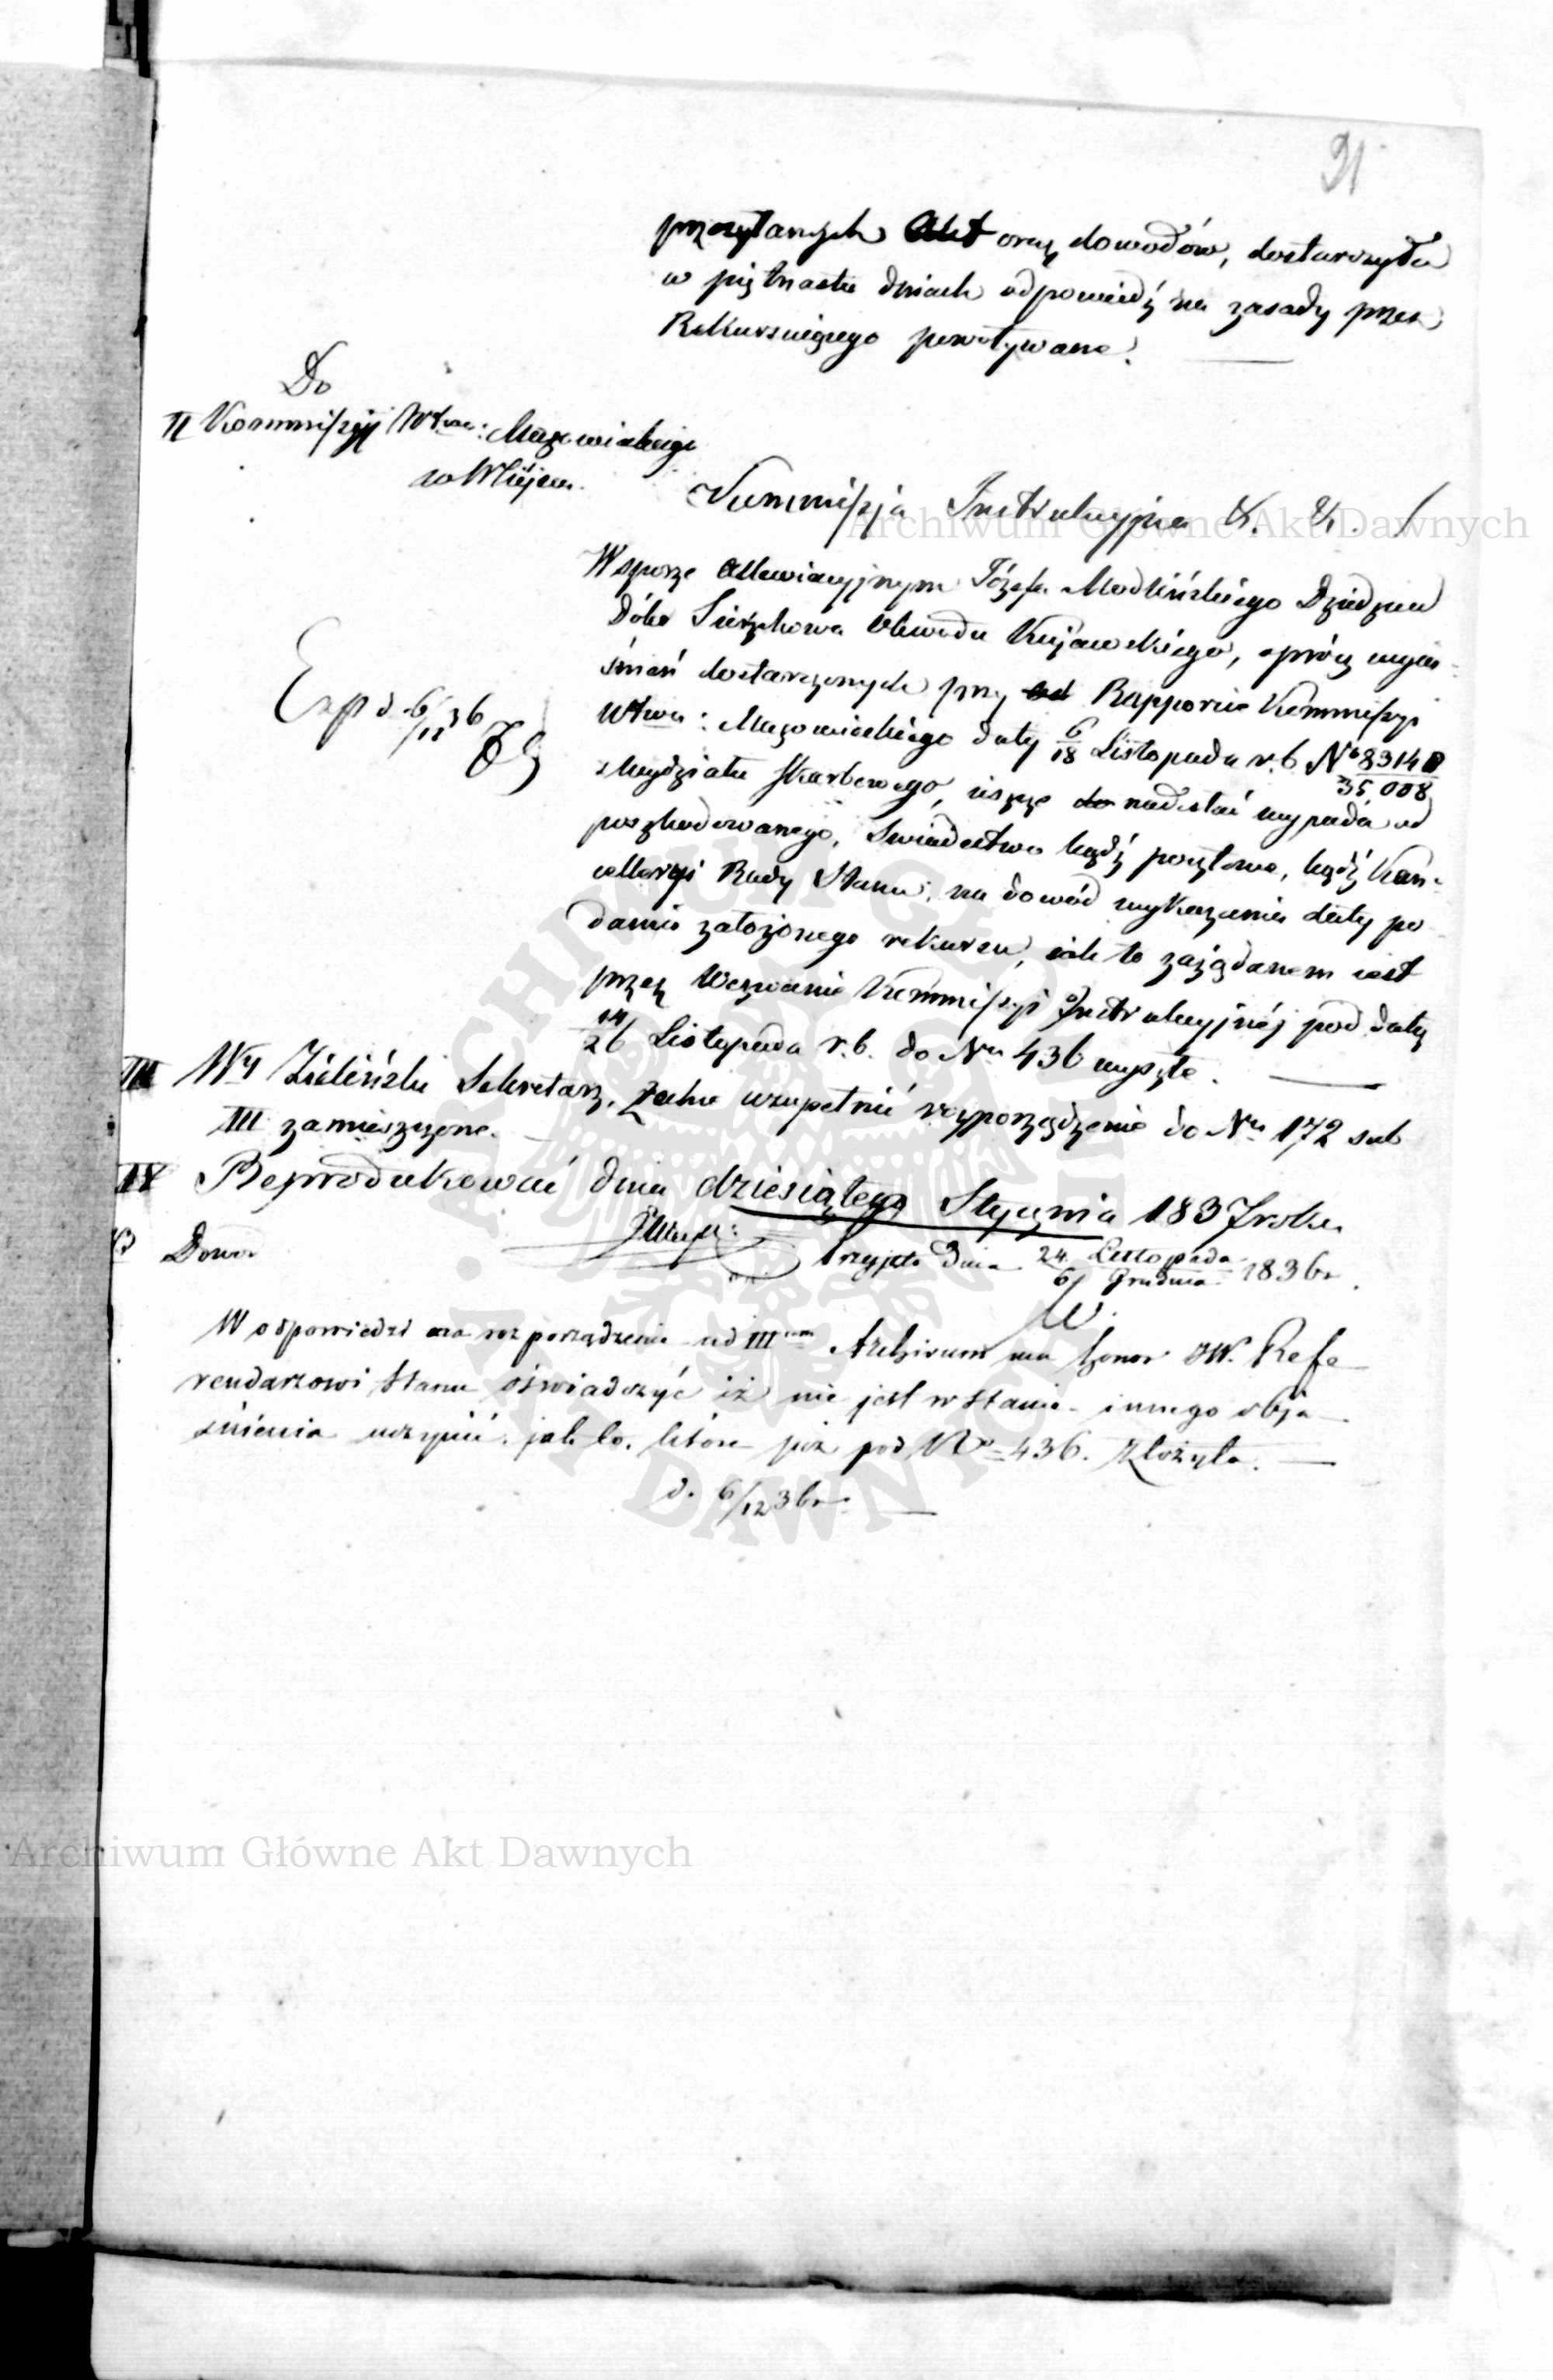 91
przesyłanych Akt oraz dowodów, dostarczyła
w piętnastu dniach odpowiedź na zasady przez
Rekursuiącego powoływane.
Do
II Kommissyi Wtwa: Mazowieckiego
w Miejscu.
Kommissja Instrukcyjna &. &.
W sporze Allewiacyjnym Józefa Modlińskiego Dziedzica
Dóbr Sierzchowa Obwodu Kujawskiego, oprócz wyia-
śnień dostarczonych przy Rapporcie Kommissyi
Wtwa: Mazowieckiego daty 6/18 Listopada r. b. No 83140/35008
z Wydziału Skarbowego, ieszcze nadesłać wypada od
poszkodowanego, Swiadectwo bądź pocztowe, bądź Kan-
cellaryi Rady Stanu, na dowód wykazania daty po-
dania założonego rekursu, iak to zażądanem iest
przez Wezwanie Kommissyi Instrukcyjnéj pod datą
14/26 Listopada r. b. do Nru 436 wyszłe.
Exp d 6/12 36
III Wny Zieliński Sekretarz, zechce uzupełnić rozporządzenie do Nru 172 sub
III zamieszczone.
IV Reprodukować dnia dziesiątego Stycznia 1837 roku
Przyjęto Dnia 24 Listopada/6 Grudnia 1836 r.
W odpowiedzi na rozporządzenie ad III Archivum ma honor JW. Refe-
rendarzowi Stanu oświadczyć iż nie jest w stanie innego obja-
śnienia uczynić, jak to, które już pod No 436. złożyła.
d. 6/12 36 r.
Archiwum Główne Akt Dawnych
Archiwum Główne Akt Dawnych